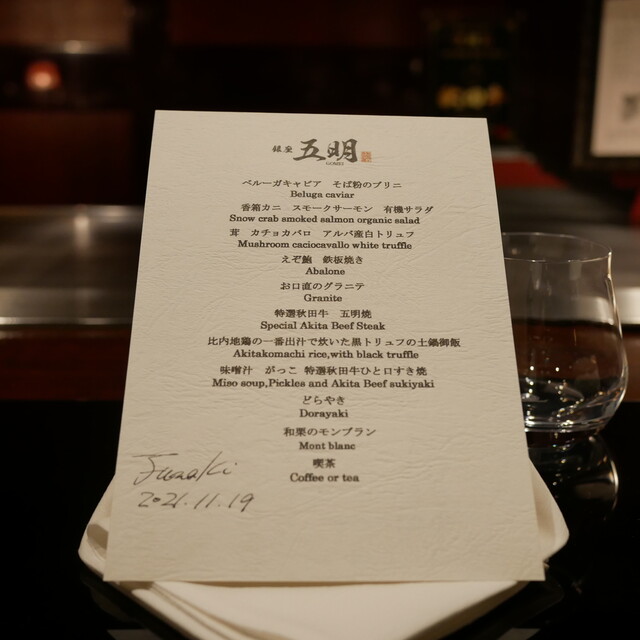 銀座 五明
GOMEI
ベルーガキャビア そば粉のブリニ
Beluga caviar
香箱カニ スモークサーモン 有機サラダ
Snow crab smoked salmon organic salad
茸 カチョカバロ アルバ産白トリュフ
Mushroom caciocavallo white truffle
えぞ鮑 鉄板焼き
Abalone
お口直のグラニテ
Granite
特選秋田牛 五明焼
Special Akita Beef Steak
比内地鶏の一番出汁で炊いた黒トリュフの土鍋御飯
Akitakomachi rice,with black truffle
味噌汁 がっこ 特選秋田牛ひと口すき焼
Miso soup,Pickles and Akita Beef sukiyaki
どらやき
Dorayaki
和栗のモンブラン
Mont blanc
喫茶
Coffee or tea
2021.11.19